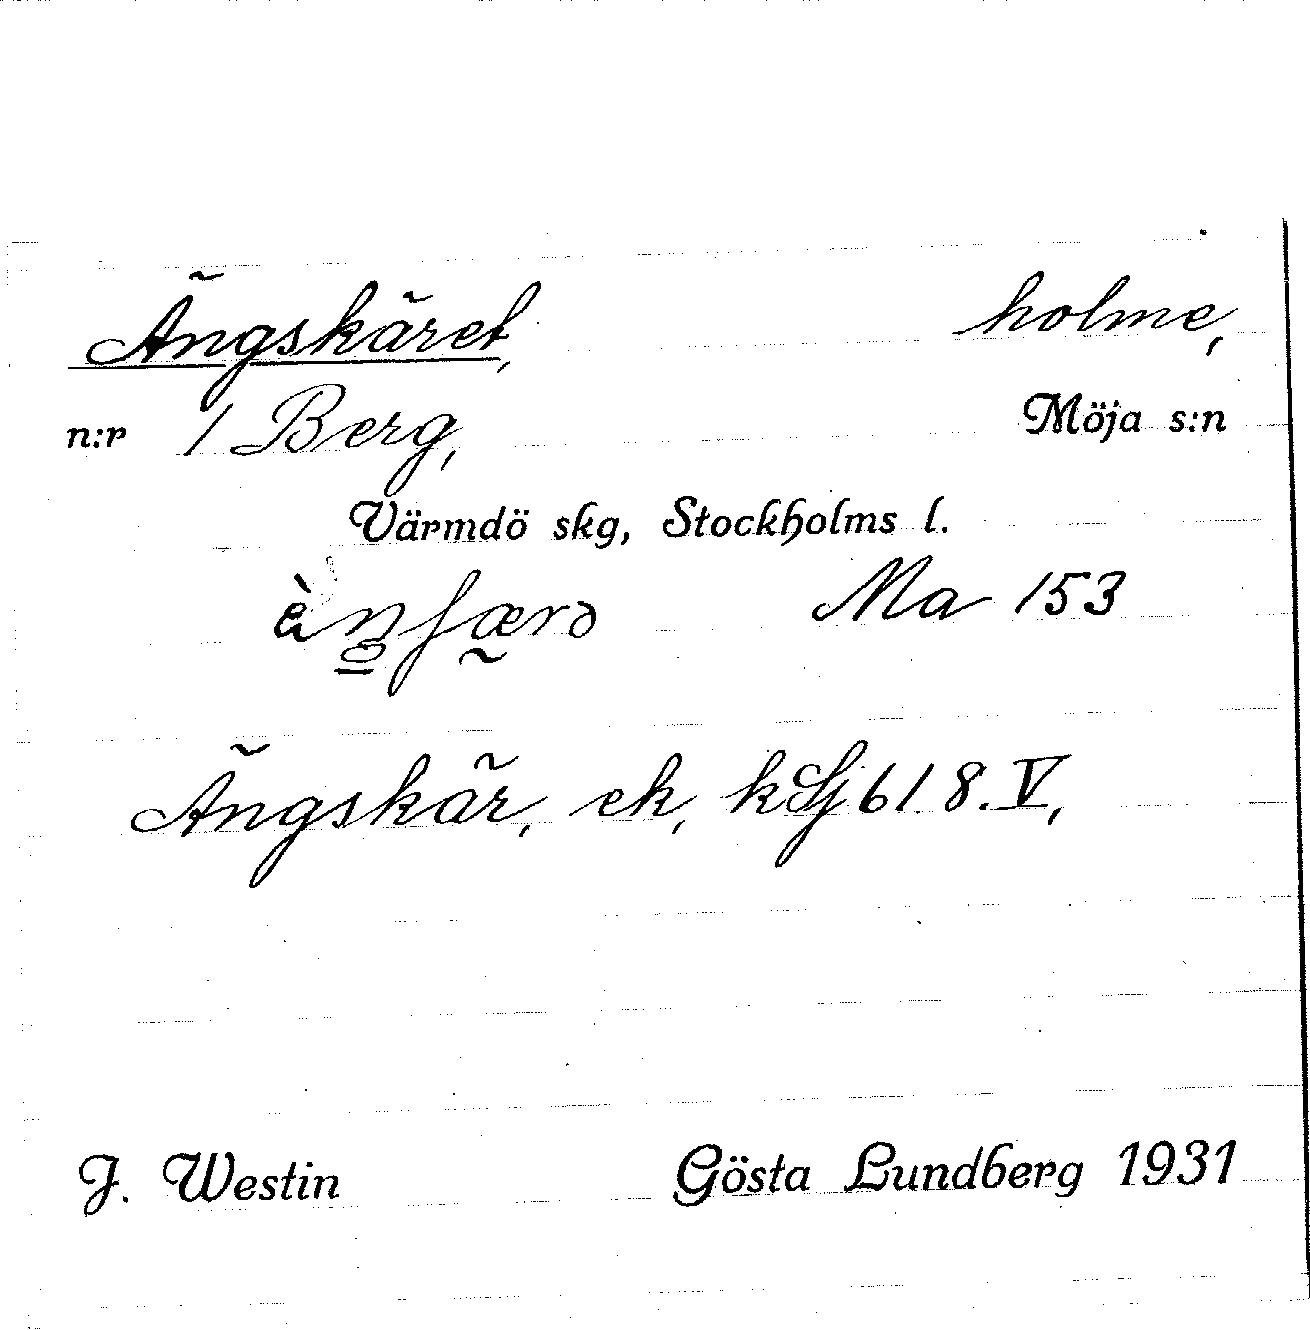 Ängskäret, holme,
n:r 1 Berg, Möja s:n
Värmdö skg, Stockholms l.
Ma 153
Ängskär, ek, kSj 618.V,
J. Westin Gösta Lundberg 1931